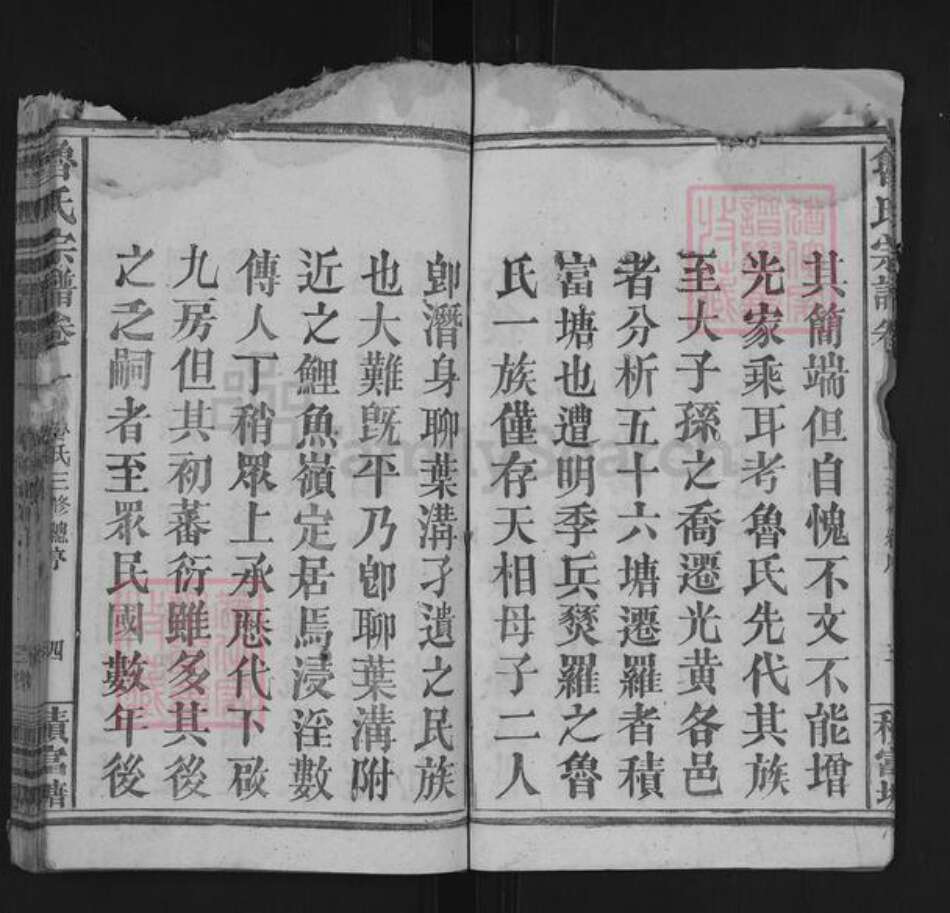 其簡端但自愧不文不能增
光家乘耳考魯氏先代其族
至大子孫之喬遷光黄各邑
者分析五十六塘遷羅者積
富塘也遭明季兵燹羅之魯
氏一族僅存天相母子二人
卽潛身聊葉溝孑遺之民族
也大難旣平乃卽聊葉溝附
近之鯉魚嶺定居焉浸淫數
傳人丁稍眾上承歷代下啟
九房但其初蕃衍雖多其後
之乏嗣者至眾民國數年後
魯氏宗譜卷一
魯氏三修總序
四
積富塘